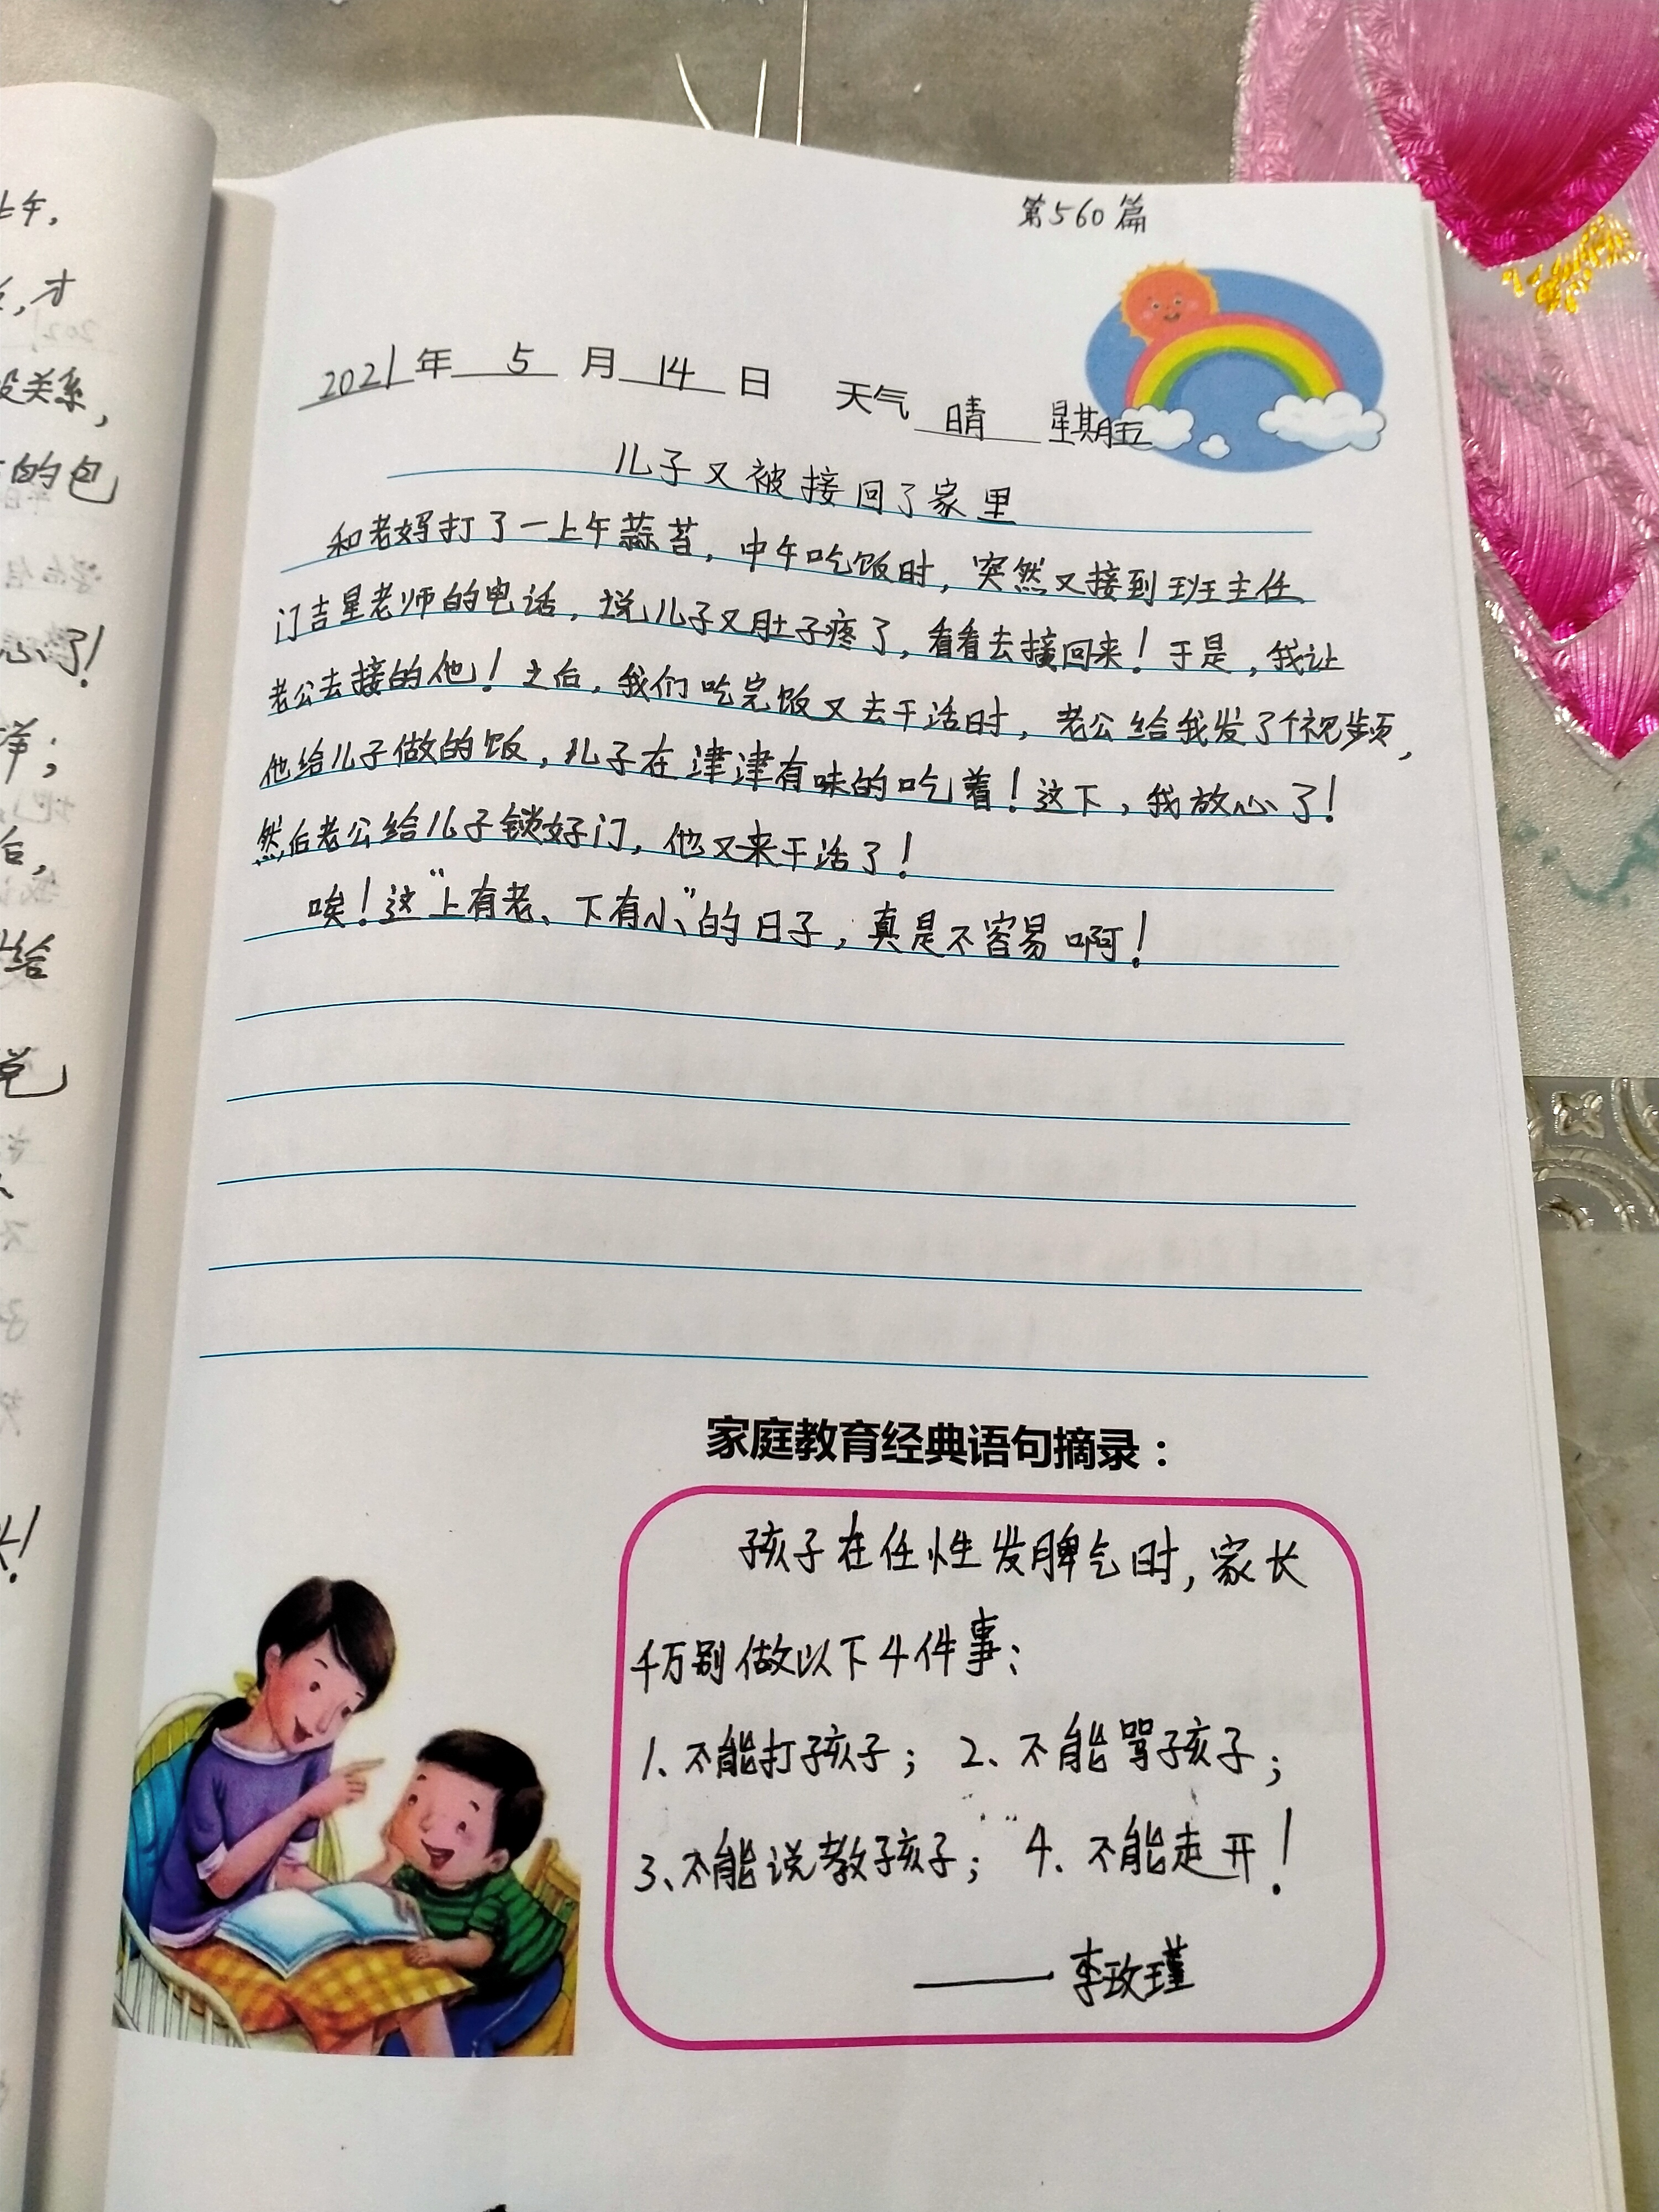 第560篇
2021年 5 月 14 日 天气 晴 星期五
儿子又被接回了家里
和老妈打了一上午蒜苔，中午吃饭时，突然又接到班主任
门吉星老师的电话，说儿子又肚子疼了，看看去接回来！于是，我让
老公去接的他！之后，我们吃完饭又去干活时，老公给我发了个视频，
他给儿子做的饭，儿子在津津有味的吃着！这下，我放心了！
然后老公给儿子锁好门，他又来干活了！
唉！这“上有老、下有小”的日子，真是不容易啊！
家庭教育经典语句摘录：
孩子在任性发脾气时，家长
千万别做以下4件事：
1、不能打孩子； 2、不能骂孩子；
3、不能说教孩子； 4、不能走开！
——李玫瑾
上午，
才
没关系，
的包
了！
样；
后，
给
说